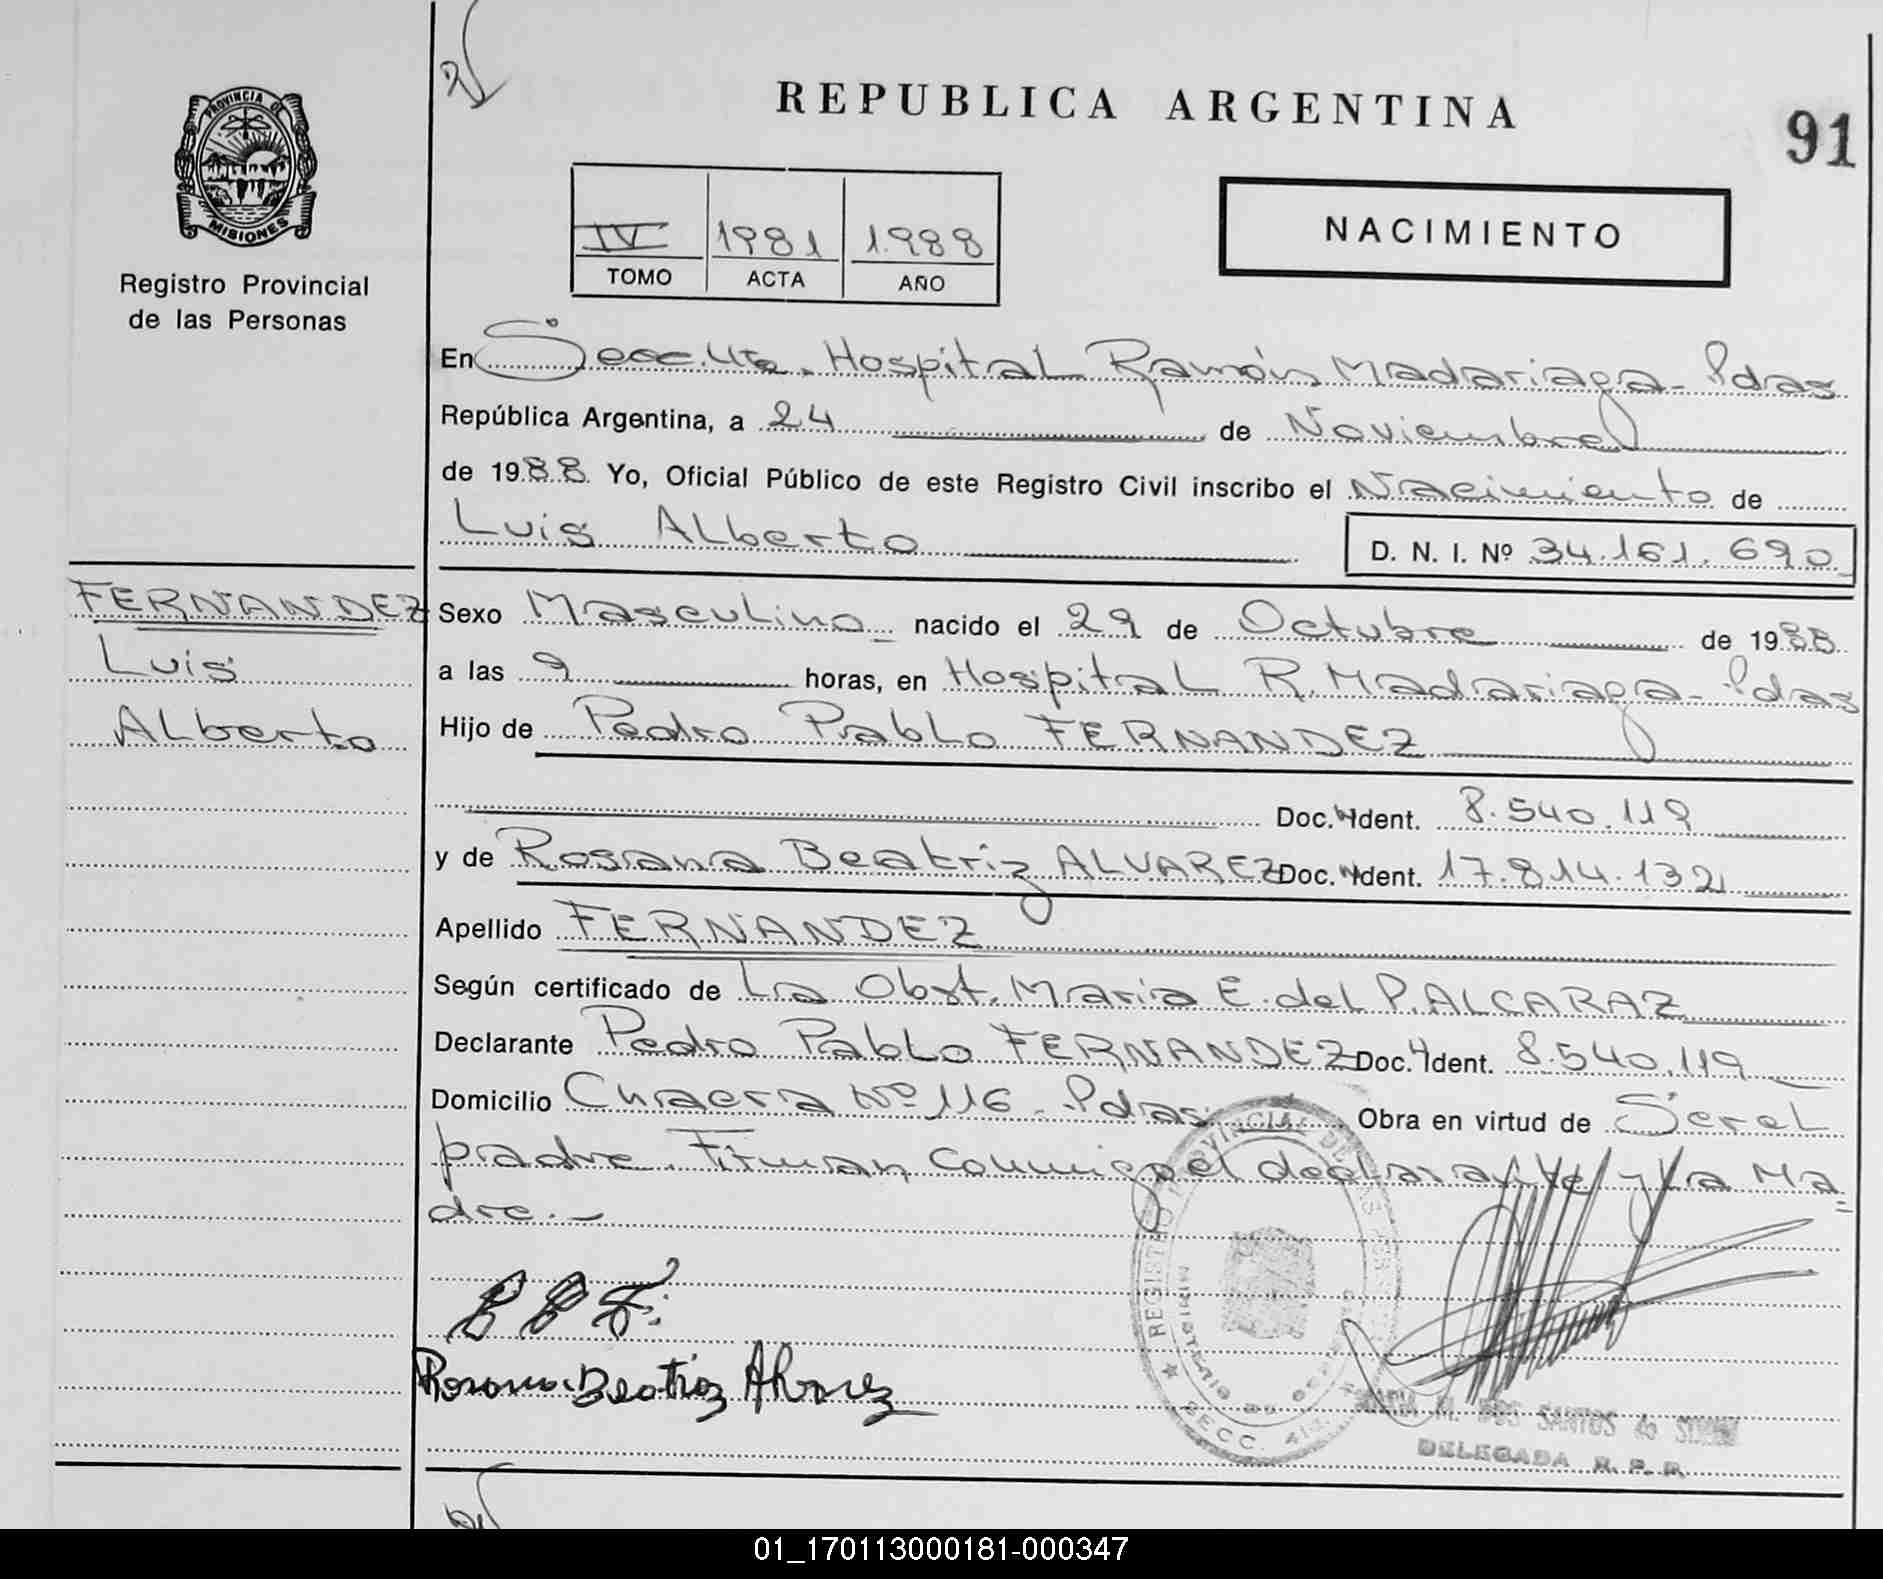 PROVINCIA DE
MISIONES
Registro Provincial
de las Personas
REPUBLICA ARGENTINA
91
IV 1981 1.988
TOMO ACTA AÑO
NACIMIENTO
En Secc. 4ta. Hospital Ramón Madariaga - Pdas
República Argentina, a 24 de Noviembre
de 1988. Yo, Oficial Público de este Registro Civil inscribo el Nacimiento de
Luis Alberto
D. N. I. Nº 34.161.690
FERNANDEZ
Luis
Alberto
Sexo Masculino nacido el 29 de Octubre de 1988
a las 9 horas, en Hospital R. Madariaga - Pdas
Hijo de Pedro Pablo FERNANDEZ
Doc. Ident. 8.540.119
y de Rosana Beatriz ALVAREZ Doc. Ident. 17.814.132
Apellido FERNANDEZ
Según certificado de La Obst. Maria E. del P. ALCARAZ
Declarante Pedro Pablo FERNANDEZ Doc. Ident. 8.540.119
Domicilio Chacra Nº 116 - Pdas Obra en virtud de Ser el
padre. Firman conmigo el declarante y la Ma
dre.-
P P F.
Rosana Beatriz Alvarez
REGISTRO PROVINCIAL DE LAS PERSONAS
SECC. 4ta.
M. DOS SANTOS de
DELEGADA R. P. P.
01_170113000181-000347